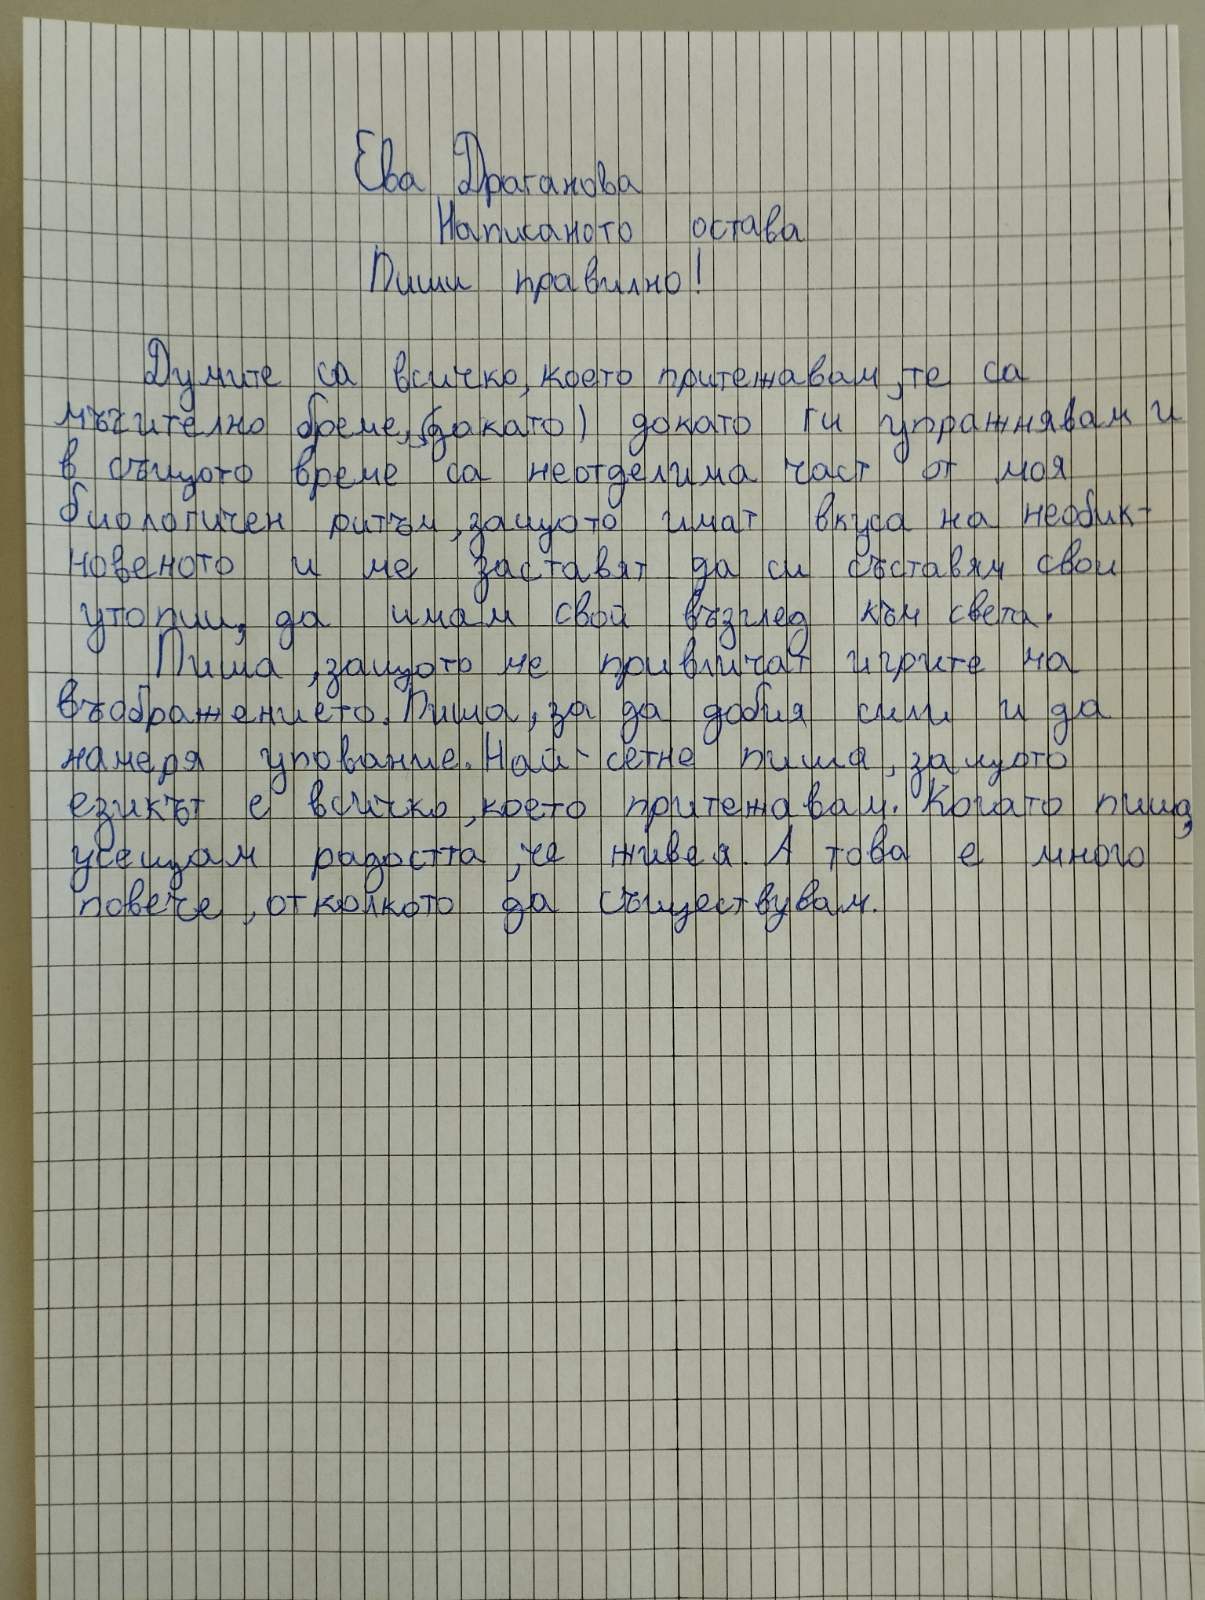 Ева Драганова
Написаното остава
Пиши правилно!
Думите са всичко, което притежавам, те са
мъчително бреме, (докато) докато ги упражнявам и
в същото време са неотделима част от моя
биологичен ритъм, защото имат вкуса на необик-
новеното и ме заставят да си съставям свои
утопии, да имам свой възглед към света.
Пиша, защото ме привличат игрите на
въображението. Пиша, за да добия сили и да
намеря упование. Най-сетне пиша, защото
езикът е всичко, което притежавам. Когато пиша,
усещам радостта, че живея. А това е много
повече, отколкото да съществувам.